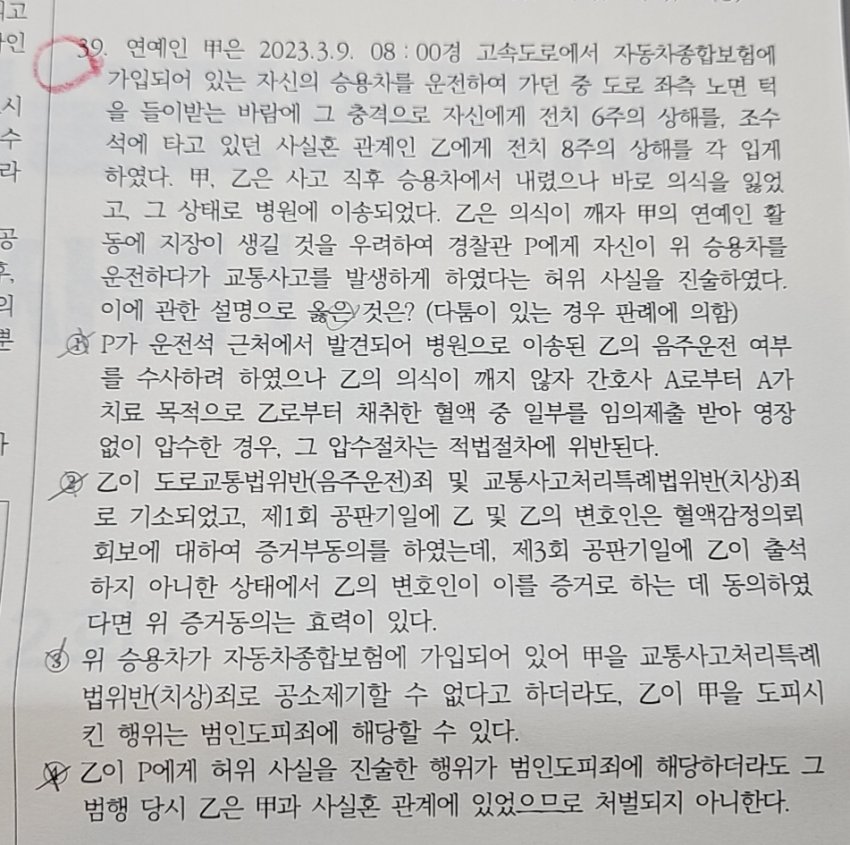 39. 연예인 甲은 2023.3.9. 08:00경 고속도로에서 자동차종합보험에
가입되어 있는 자신의 승용차를 운전하여 가던 중 도로 좌측 노면 턱
을 들이받는 바람에 그 충격으로 자신에게 전치 6주의 상해를, 조수
석에 타고 있던 사실혼 관계인 乙에게 전치 8주의 상해를 각 입게
하였다. 甲, 乙은 사고 직후 승용차에서 내렸으나 바로 의식을 잃었
고, 그 상태로 병원에 이송되었다. 乙은 의식이 깨자 甲의 연예인 활
동에 지장이 생길 것을 우려하여 경찰관 P에게 자신이 위 승용차를
운전하다가 교통사고를 발생하게 하였다는 허위 사실을 진술하였다.
이에 관한 설명으로 옳은 것은? (다툼이 있는 경우 판례에 의함)
① P가 운전석 근처에서 발견되어 병원으로 이송된 乙의 음주운전 여부
를 수사하려 하였으나 乙의 의식이 깨지 않자 간호사 A로부터 A가
치료 목적으로 乙로부터 채취한 혈액 중 일부를 임의제출 받아 영장
없이 압수한 경우, 그 압수절차는 적법절차에 위반된다.
② 乙이 도로교통법위반(음주운전)죄 및 교통사고처리특례법위반(치상)죄
로 기소되었고, 제1회 공판기일에 乙 및 乙의 변호인은 혈액감정의뢰
회보에 대하여 증거부동의를 하였는데, 제3회 공판기일에 乙이 출석
하지 아니한 상태에서 乙의 변호인이 이를 증거로 하는 데 동의하였
다면 위 증거동의는 효력이 있다.
③ 위 승용차가 자동차종합보험에 가입되어 있어 甲을 교통사고처리특례
법위반(치상)죄로 공소제기할 수 없다고 하더라도, 乙이 甲을 도피시
킨 행위는 범인도피죄에 해당할 수 있다.
④ 乙이 P에게 허위 사실을 진술한 행위가 범인도피죄에 해당하더라도 그
범행 당시 乙은 甲과 사실혼 관계에 있었으므로 처벌되지 아니한다.